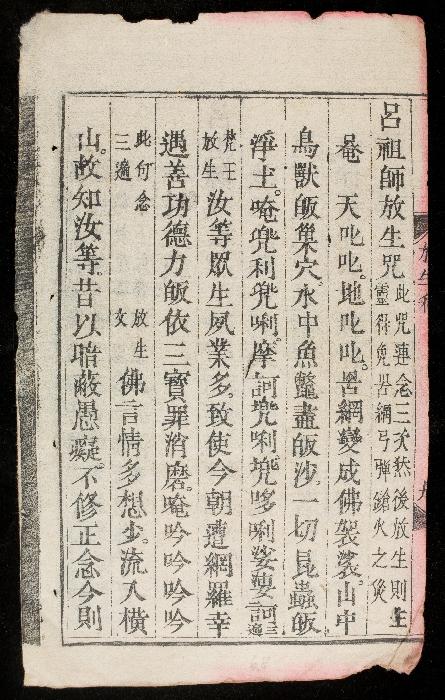 呂祖師放生咒 此咒連念三次然後放生則生
靈得免罟網弓彈鎗火之災
菴 天叱叱。地叱叱。罟網變成佛袈裟。山中
鳥獸皈巢穴。水中魚鱉盡皈沙。一切昆蟲皈
淨土。唵兜利兜唎。摩訶兜唎兜哆唎娑婆訶 三遍
梵王放生 汝等眾生夙業多。致使今朝遭網羅幸
遇善功德力皈依三寶罪消磨。唵吟吟吟吟
此句念三遍 放生文 佛言情多想少。流入橫
山。故知汝等。昔以暗蔽愚癡。不修正念今則
放生